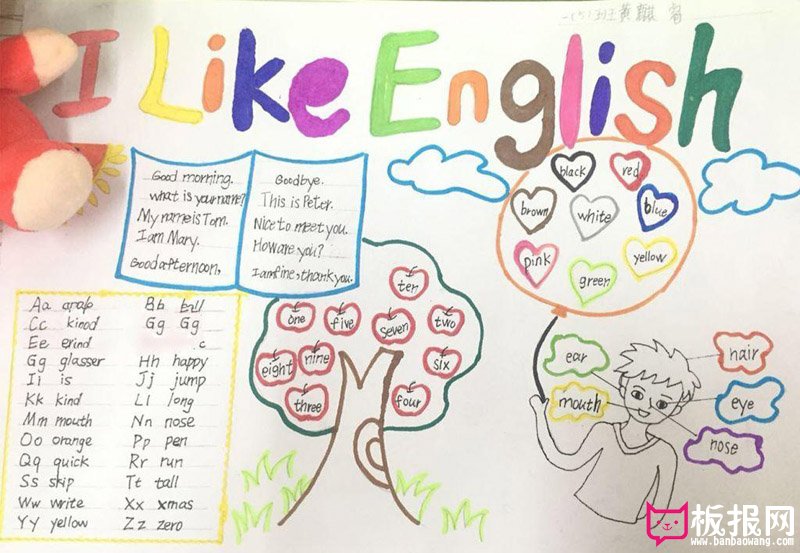 一(5)班 黄
I Like English
Good morning.
what is your name?
My name is Tom.
I am Mary.
Good afternoon,
Goodbye.
This is Peter.
Nice to meet you.
How are you?
I am fine, thank you.
black
red
brown
white
blue
pink
green
yellow
ten
one
five
seven
two
eight
nine
six
three
four
Aa Bb
Cc kinod Gg Gg
Ee erind c
Gg glasser Hh happy
Ii is Jj jump
Kk kind Ll long
Mm mouth Nn nose
Oo orange Pp pen
Qq quick Rr run
Ss skip Tt tall
Ww write Xx xmas
Yy yellow Zz zero
ear
hair
mouth
eye
nose
板报网
www.banbaowang.com